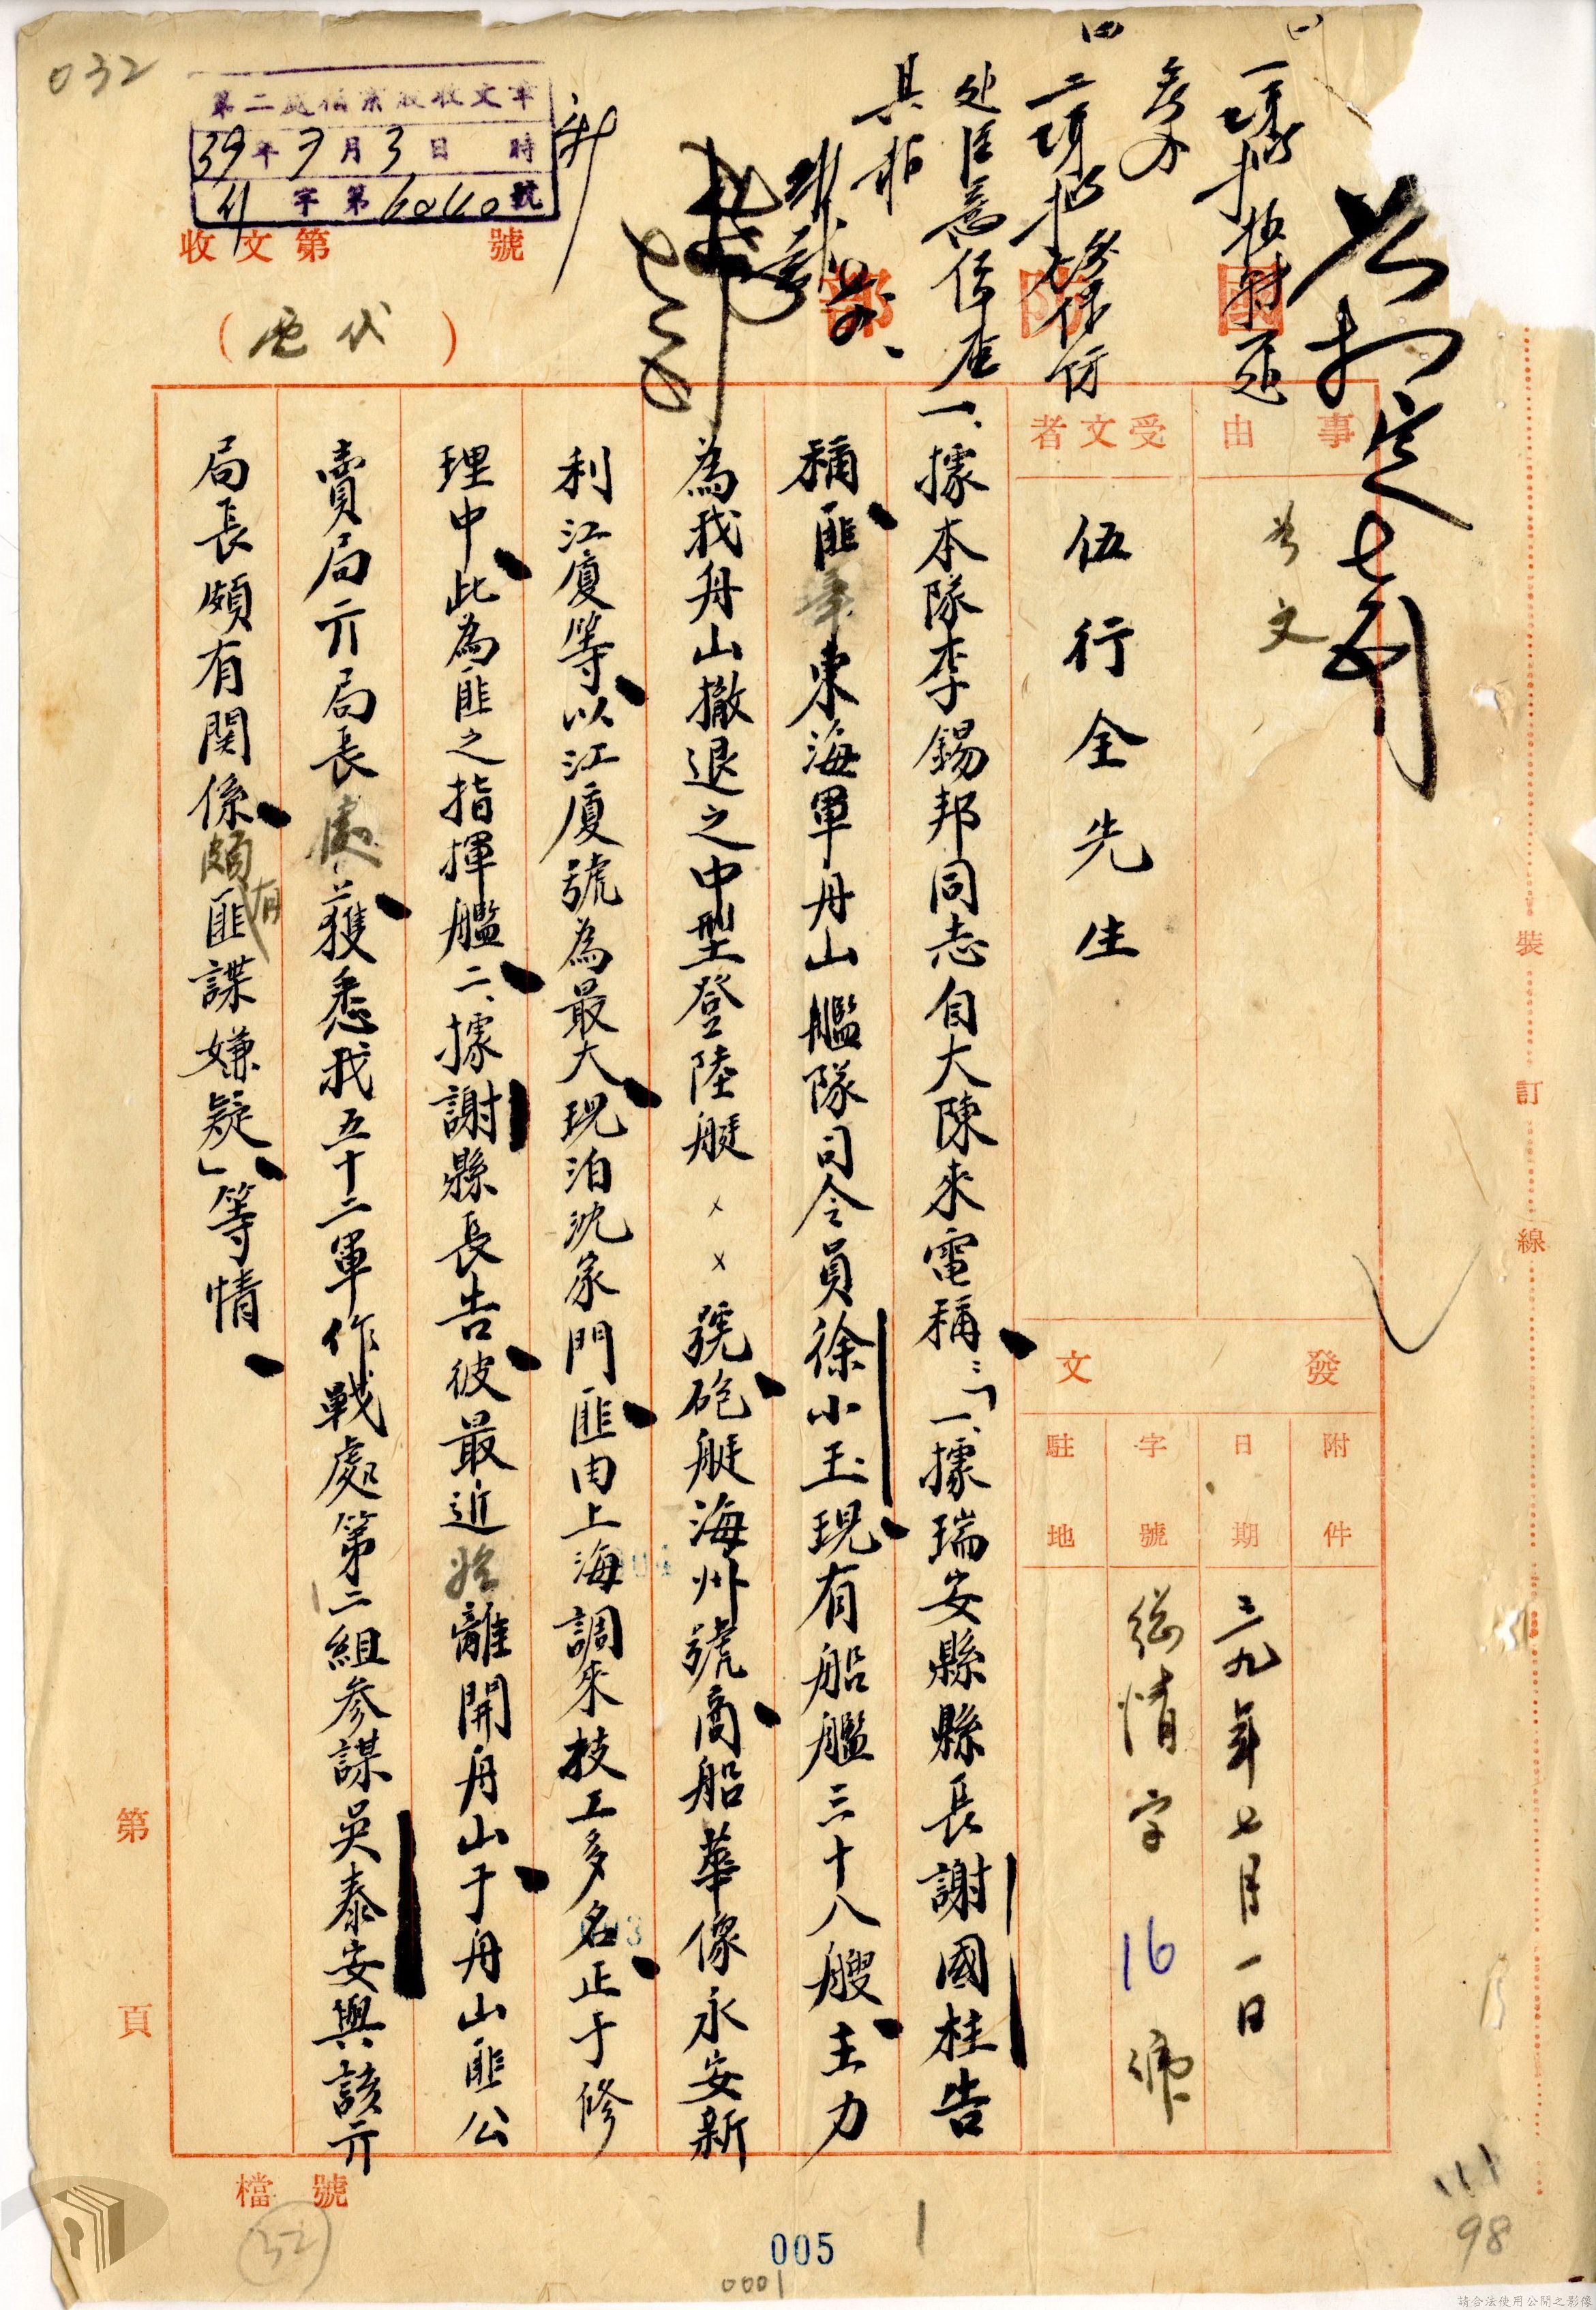 032
第二處檔案股收文章
39年7月3日 時
字第6040號
收文第 號
(代電)
國防部
一項擬抄
二項擬
事由
受文者
伍行全先生
發文
附件
日期 三九年七月一日
字號 總情字16號
駐地
一、據本隊李錫邦同志自大陳來電稱:「一、據瑞安縣縣長謝國桂告
稱匪東海軍舟山艦隊司令員徐小玉現有船艦三十八艘主力
為我舟山撤退之中型登陸艇××號砲艇海州號商船華像永安新
利江廈等以江廈號為最大現泊沈家門匪由上海調來技工多名正于修
理中此為匪之指揮艦二、據謝縣長告彼最近離開舟山于舟山匪公
賣局亓局長處獲悉我五十二軍作戰處第二組參謀吳泰安與該亓
局長頗有関係頗有匪諜嫌疑」等情
裝
訂
線
第 頁
檔號
32
005
0001
98
請合法使用公開之影像